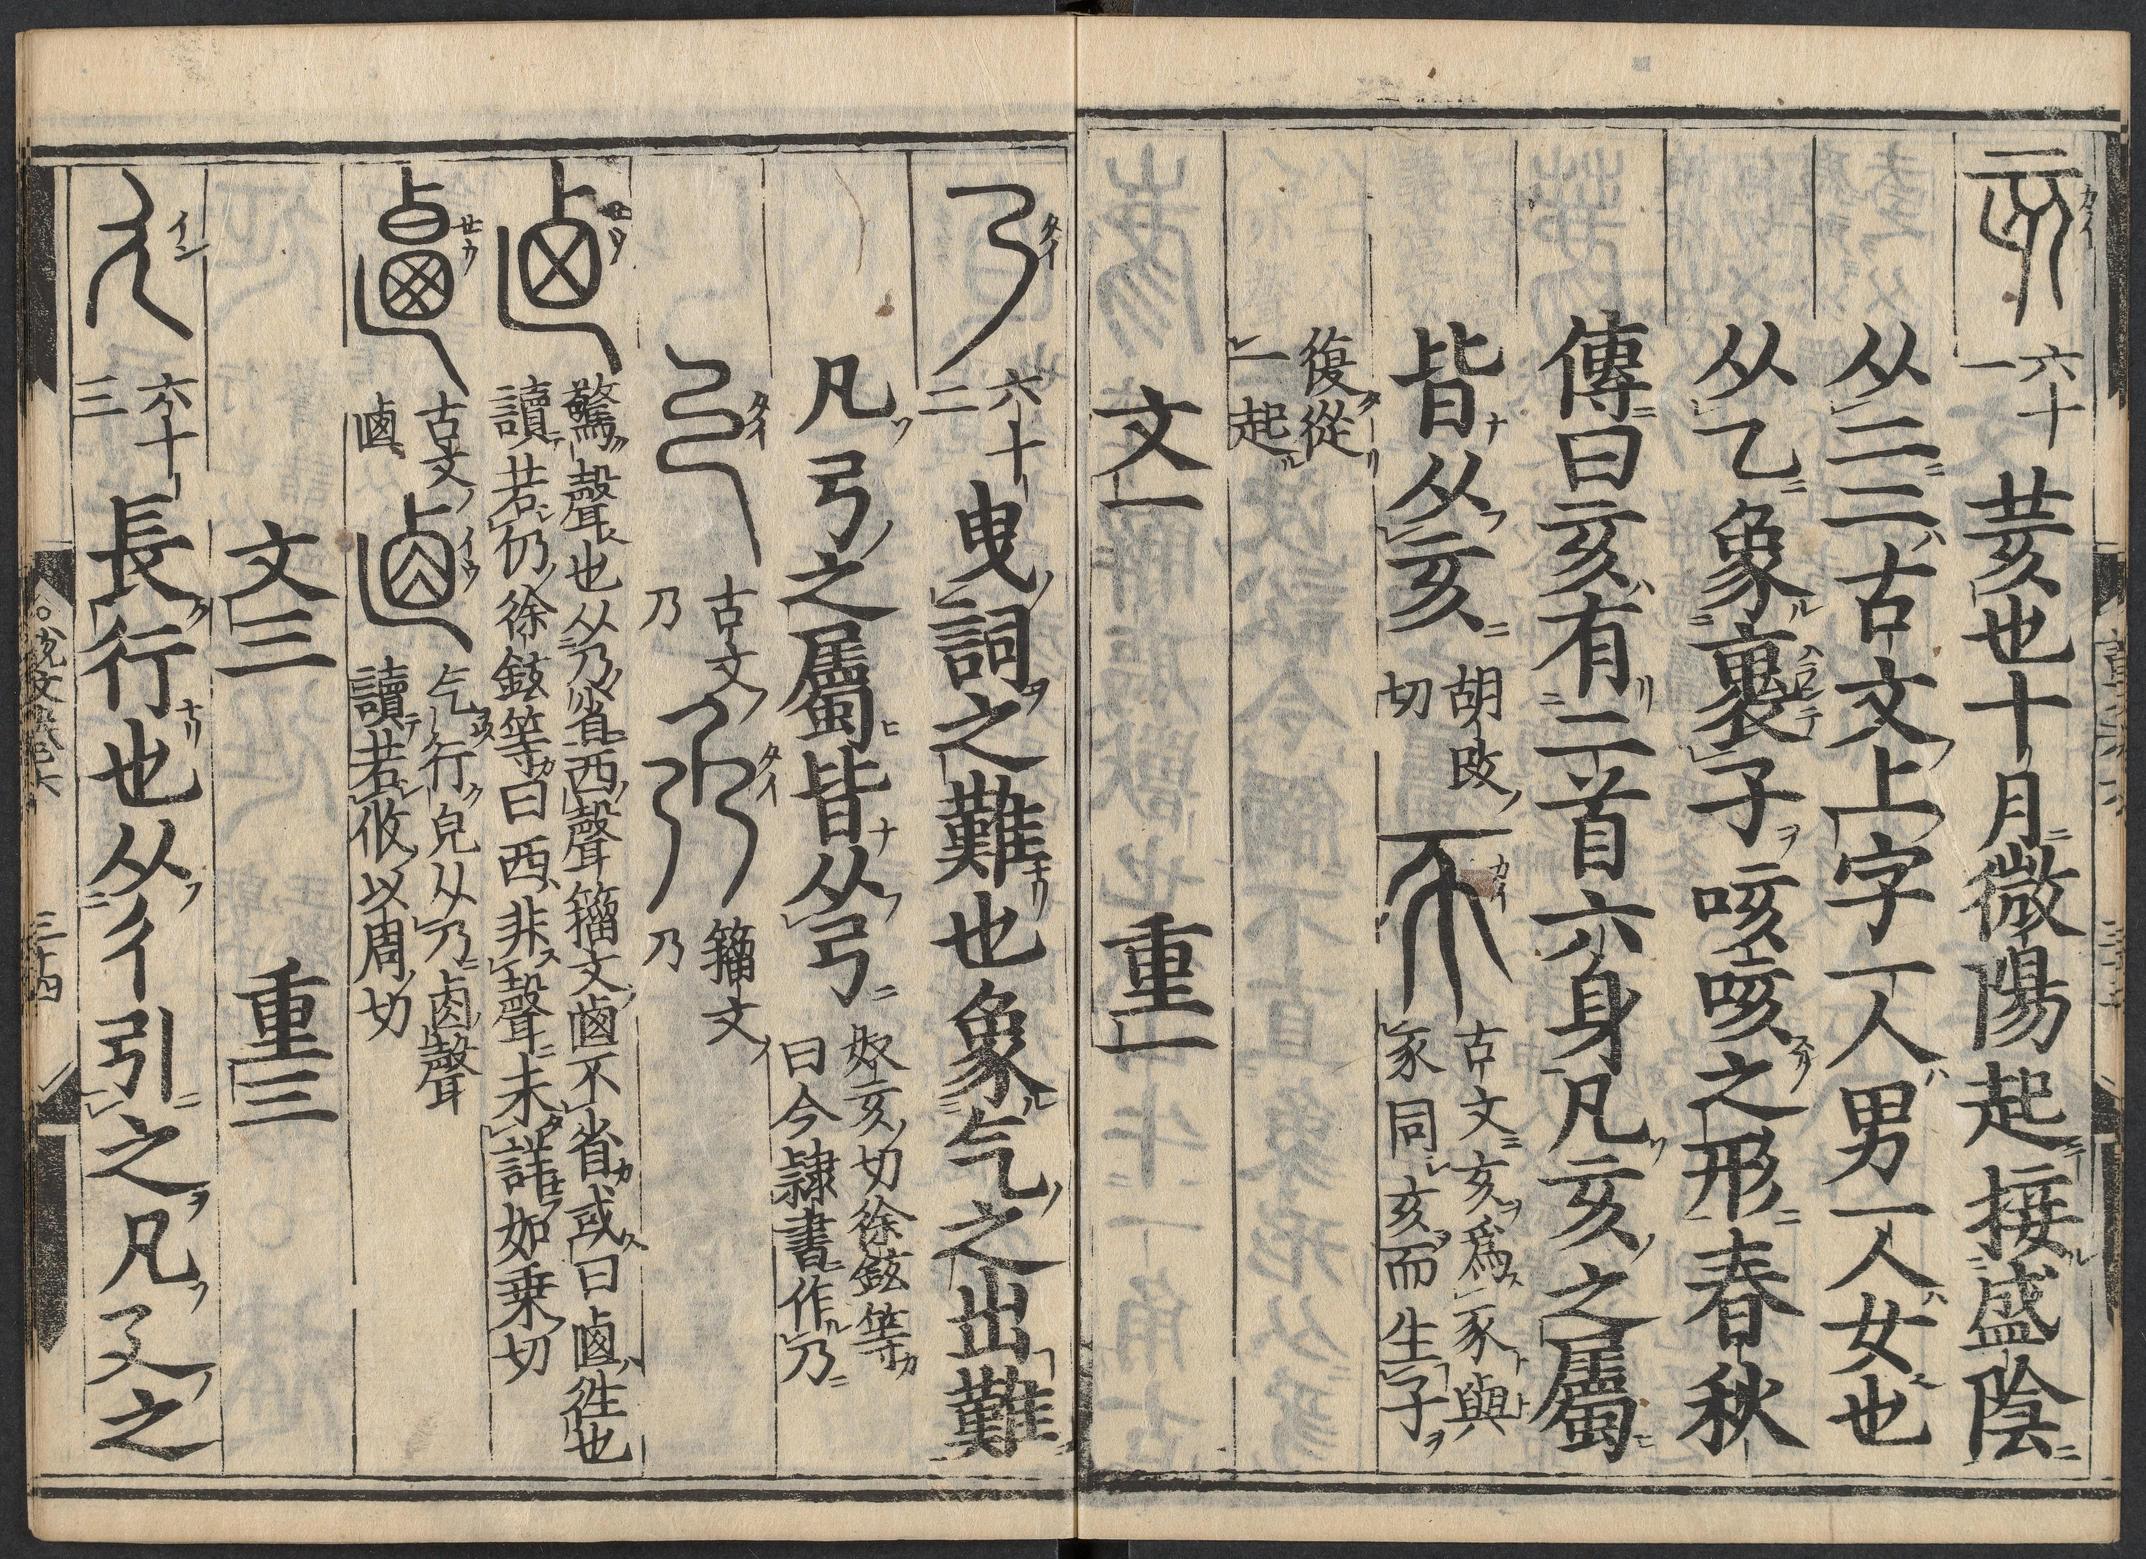 亥 六十一 荄也十月微陽起接盛陰
从二二古文上字一人男一人女也
从乙象裹子咳咳之形春秋
傳曰亥有二首六身凡亥之屬
皆从亥 胡改切 古文亥爲豕與豕同亥而生子
復從一起
文一 重一
乃 六十二 曳詞之難也象气之出難
凡乃之屬皆从乃 奴亥切徐鉉等曰今隷書作乃
古文乃 籀文乃
驚聲也从乃省西聲籀文𠧟不省或曰𠧟徃也
讀若仍徐鉉等曰西非聲未詳如乗切
古文𠧟 气行皃从乃卥聲讀若攸以周切
文三 重三
廴 六十三 長行也从彳引之凡廴之